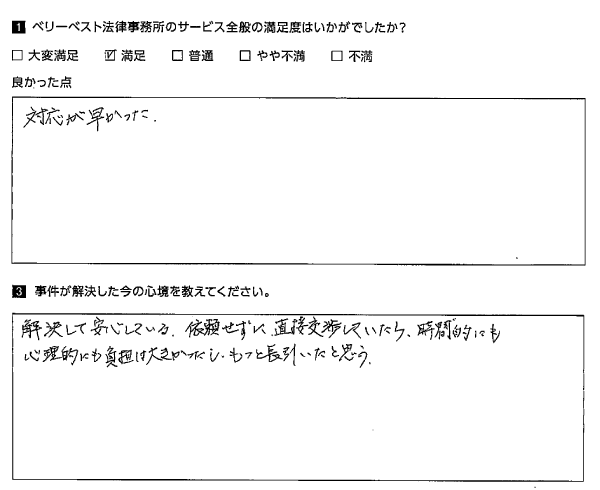 1 ベリーベスト法律事務所のサービス全般の満足度はいかがでしたか？
□ 大変満足 ☑ 満足 □ 普通 □ やや不満 □ 不満
良かった点
対応が早かった.
3 事件が解決した今の心境を教えてください。
解決して安心している. 依頼せずに、直接交渉していたら、時間的にも
心理的にも負担は大きかったし、もっと長引いたと思う.